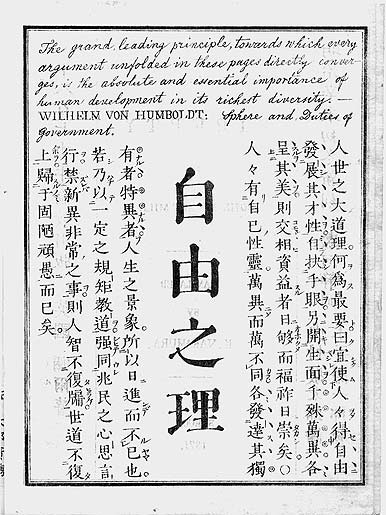 The grand, leading principle, towards which every
argument unfolded in these pages directly conver-
ges, is the absolute and essential importance of
human development in its richest diversity. —
WILHELM VON HUMBOLDT: Sphere and Duties of
Government.
人世之大道理何為最要曰宜使人々得自由
發展其才性自抉手眼另開生面千殊萬異各
呈其美則交相資益者日夥而福祚日崇矣〇
人々有自己性靈萬異而萬不同各發達其獨
自由之理
有者特異者人生之景象所以日進而不已也
若乃以一定之規矩教道强同兆民之心思言
行禁新異非常之事則人智不復世道不復
上歸于固陋頑愚而已矣